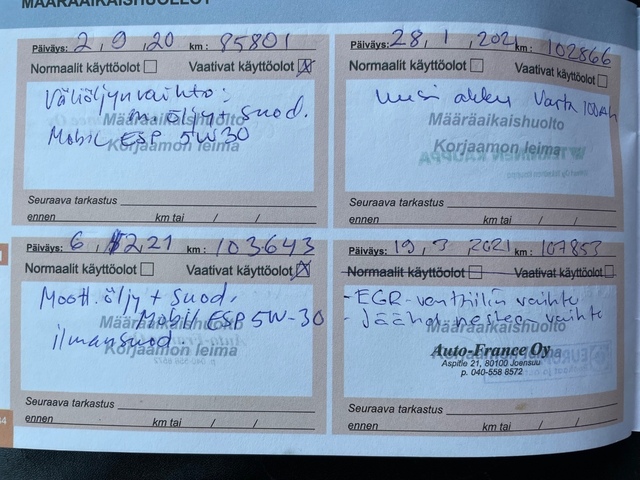 MÄÄRÄAIKAISHUOLLOT
Päiväys: 2,9,20 km: 85801
Normaalit käyttöolot Vaativat käyttöolot X
Väliöljynvaihto:
m.öljy + suod.
Mobil ESP 5W30
Määräaikaishuolto
Korjaamon leima
Seuraava tarkastus
ennen km tai / /
Päiväys: 28,1,2021 km: 102866
Normaalit käyttöolot Vaativat käyttöolot
uusi akku Varta 100Ah
Määräaikaishuolto
Korjaamon leima
Seuraava tarkastus
ennen km tai / /
Päiväys: 6,2,21 km: 103643
Normaalit käyttöolot Vaativat käyttöolot X
Moott.öljy + suod.
Mobil ESP 5W-30
ilmansuod.
Määräaikaishuolto
Korjaamon leima
Seuraava tarkastus
ennen km tai / /
Päiväys: 19,3 2021 km: 107853
Normaalit käyttöolot Vaativat käyttöolot
- EGR-venttiilin vaihto
- Jäähd.nesteen vaihto
Määräaikaishuolto
Auto-France Oy
Aspitie 21, 80100 Joensuu
p. 040-558 8572
Seuraava tarkastus
ennen km tai / /